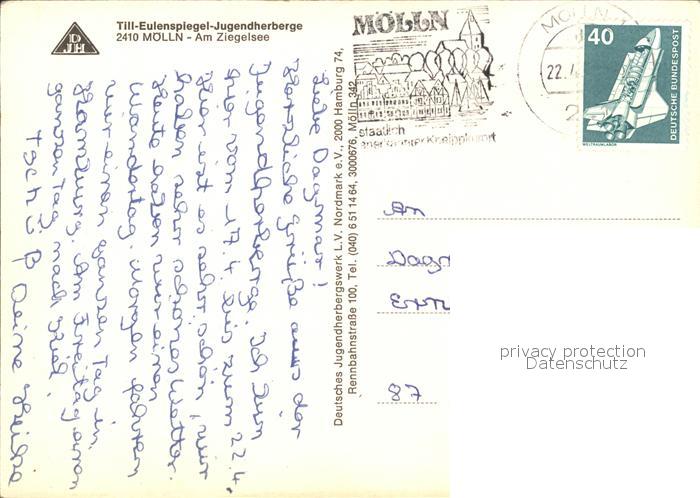 Till-Eulenspiegel-Jugendherberge
2410 MÖLLN - Am Ziegelsee
Liebe Dagmar!
Herzliche Grüße aus der
Jugendherberge. Ich bin
hier vom 17.4. bis zum 22.4.
Hier ist es sehr schön, wir
haben sehr schönes Wetter.
Heute haben wir einen
Wandertag. Morgen fahren
wir einen ganzen Tag in
Hamburg. Am Freitag einen
ganzen Tag nach Kiel.
Tschüß Deine Heike
Deutsches Jugendherbergswerk L.V. Nordmark e.V., 2000 Hamburg 74,
Rennbahnstraße 100, Tel. (040) 6 51 14 64, 3000676, Mölln 342
MÖLLN
staatlich
anerkannter Kneippkurort
MÖLLN
22.
2
40
DEUTSCHE BUNDESPOST
WELTRAUMLABOR
An
Dagr
87
privacy protection
Datenschutz